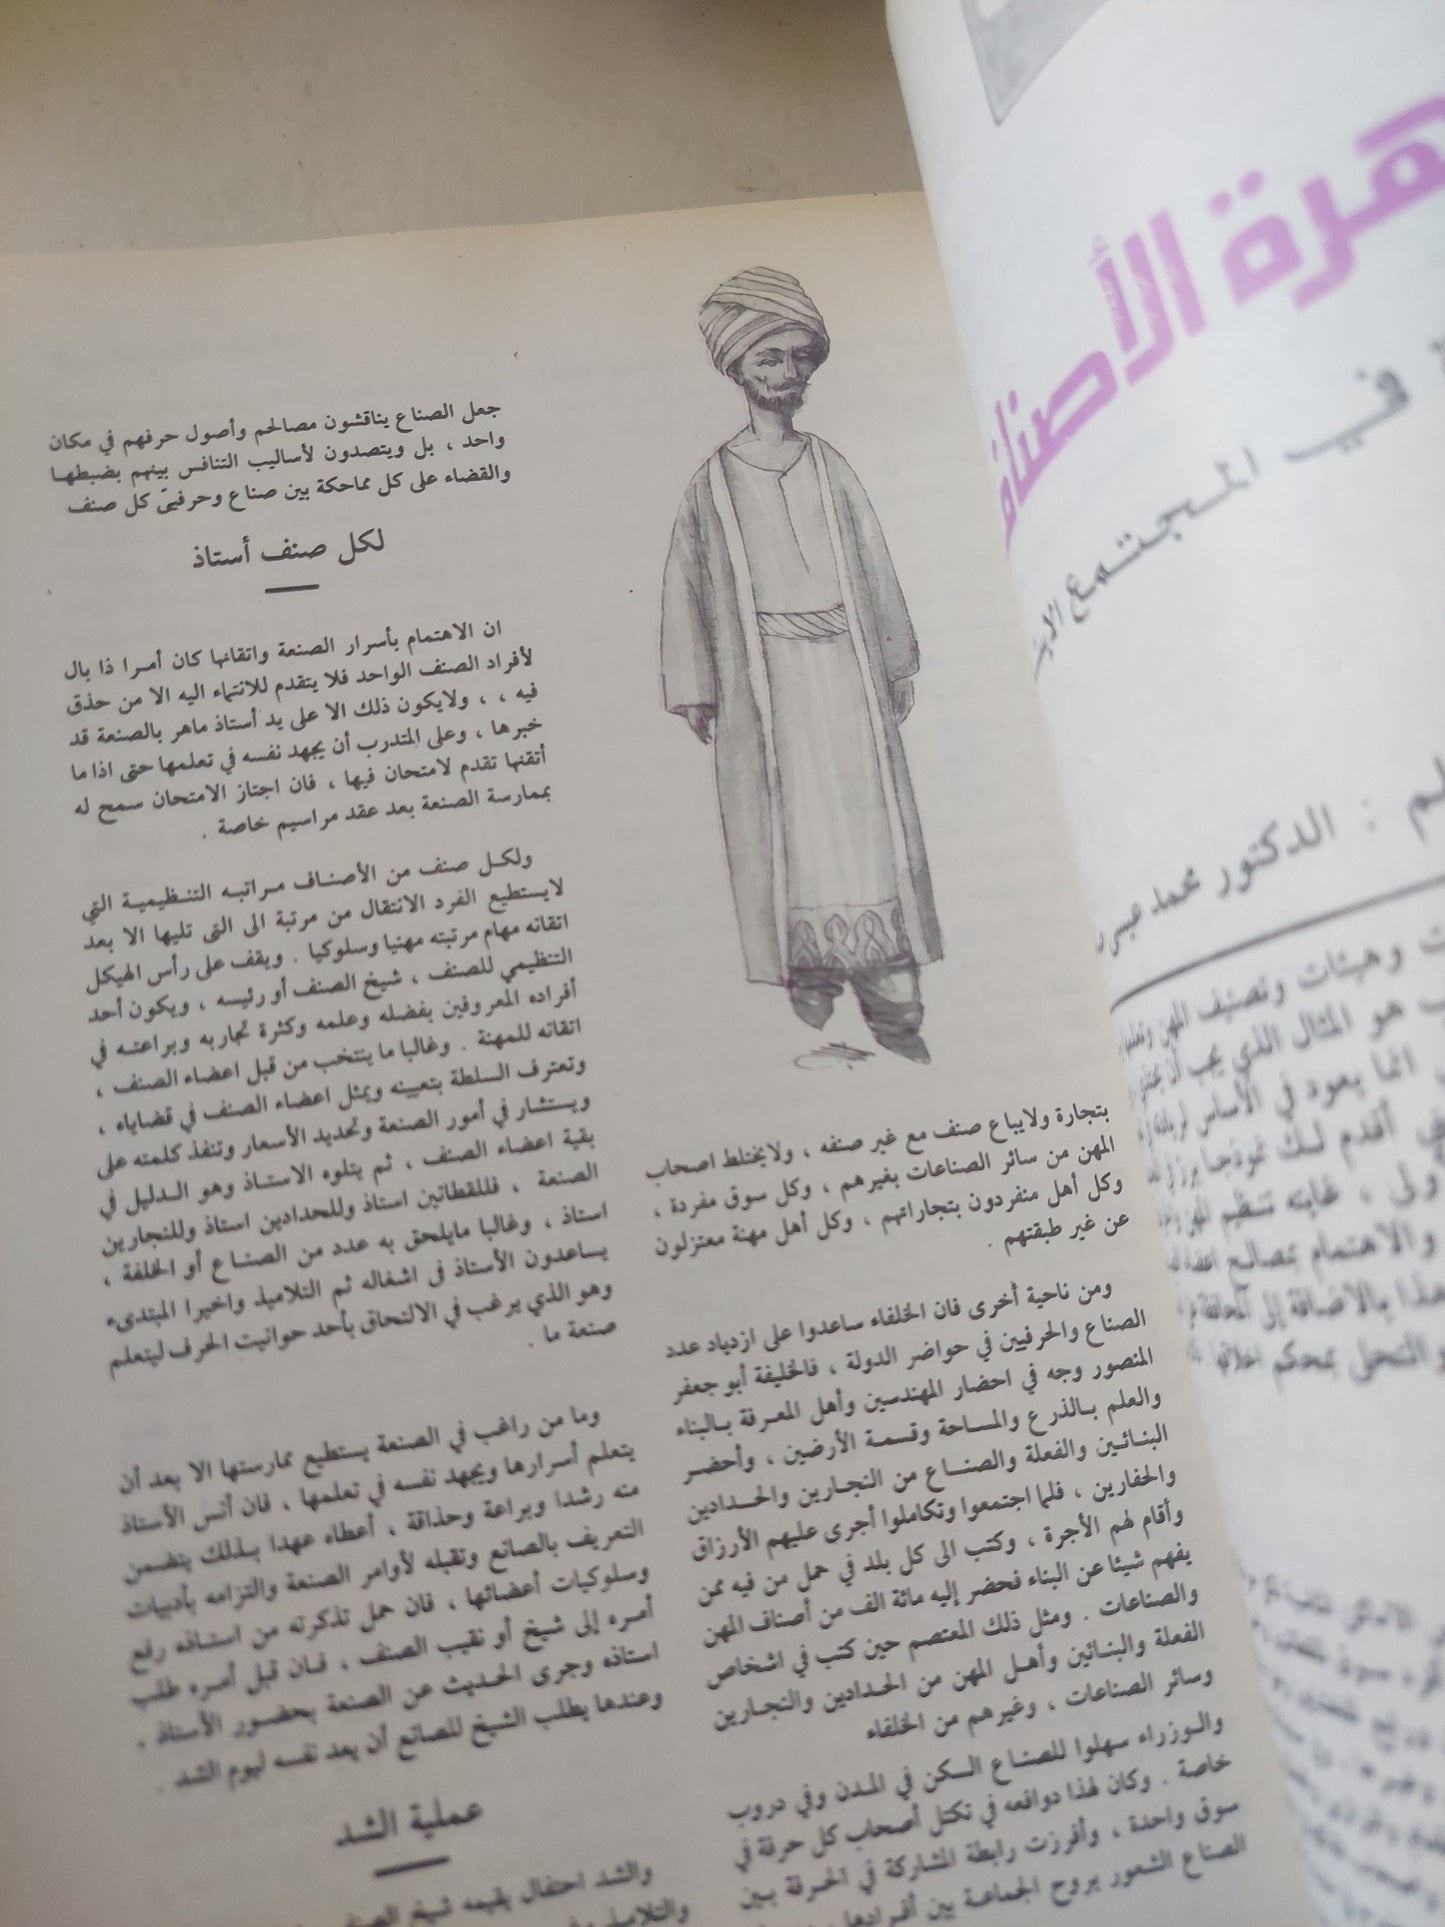 هرة الأصناف
في المجتمع
: الدكتور محمد
وهيئات وتصنيف المهن
هو المثال الذي يجب أن
انما يعود في الأساس
أقدم لك نموذجا
، غايته تنظيم المهن
والاهتمام بمصالح
هذا بالاضافة إلى المحافظة
والتحلي بمحكم اخلاقها
بتجارة ولايباع صنف مع غير صنفه ، ولايختلط اصحاب
المهن من سائر الصناعات بغيرهم ، وكل سوق مفردة ،
وكل أهل منفردون بتجاراتهم ، وكل أهل مهنة معتزلون
عن غير طبقتهم .
ومن ناحية أخرى فان الخلفاء ساعدوا على ازدياد عدد
الصناع والحرفيين في حواضر الدولة ، فالخليفة أبو جعفر
المنصور وجه في احضار المهندسين وأهل المعرفة بالبناء
والعلم بالذرع والمساحة وقسمة الأرضين ، وأحضر
البنائين والفعلة والصناع من النجارين والحدادين
والحفارين ، فلما اجتمعوا وتكاملوا أجرى عليهم الأرزاق
وأقام لهم الأجرة ، وكتب الى كل بلد في حمل من فيه ممن
يفهم شيئا عن البناء فحضر إليه مائة الف من أصناف المهن
والصناعات . ومثل ذلك المعتصم حين كتب في اشخاص
الفعلة والبنائين وأهل المهن من الحدادين والنجارين
وسائر الصناعات ، وغيرهم من الخلفاء
والوزراء سهلوا للصناع السكن في المدن وفي دروب
خاصة . وكان لهذا دوافعه في تكتل أصحاب كل حرفة في
سوق واحدة ، وأفرزت رابطة المشاركة في الحرفة بين
الصناع الشعور بروح الجماعة بين أفرادها
جعل الصناع يناقشون مصالحم وأصول حرفهم في مكان
واحد ، بل ويتصدون لأساليب التنافس بينهم بضبطها
والقضاء على كل مماحكة بين صناع وحرفيى كل صنف
لكل صنف أستاذ
ان الاهتمام بأسرار الصنعة واتقانها كان أمرا ذا بال
لأفراد الصنف الواحد فلا يتقدم للانتماء اليه الا من حذق
فيه ، ، ولايكون ذلك الا على يد أستاذ ماهر بالصنعة قد
خبرها ، وعلى المتدرب أن يجهد نفسه في تعلمها حتى اذا ما
أتقنها تقدم لامتحان فيها ، فان اجتاز الامتحان سمح له
بممارسة الصنعة بعد عقد مراسيم خاصة .
ولكل صنف من الأصناف مراتبه التنظيمية التي
لايستطيع الفرد الانتقال من مرتبة الى التى تليها الا بعد
اتقانه مهام مرتبته مهنيا وسلوكيا . ويقف على رأس الهيكل
التنظيمي للصنف ، شيخ الصنف أو رئيسه ، ويكون أحد
أفراده المعروفين بفضله وعلمه وكثرة تجاربه وبراعته في
اتقانه للمهنة . وغالبا ما ينتخب من قبل اعضاء الصنف ،
وتعترف السلطة بتعيينه ويمثل اعضاء الصنف في قضاياه ،
ويستشار في أمور الصنعة وتحديد الأسعار وتنفذ كلمته على
بقية اعضاء الصنف ، ثم يتلوه الاستاذ وهو الدليل في
الصنعة ، فللقطانين استاذ وللحدادين استاذ وللنجارين
استاذ ، وغالبا مايلحق به عدد من الصناع أو الخلفة ،
يساعدون الأستاذ في اشغاله ثم التلاميذ واخيرا المبتدىء
وهو الذي يرغب في الالتحاق بأحد حوانيت الحرف ليتعلم
صنعة ما .
وما من راغب في الصنعة يستطيع ممارستها الا بعد أن
يتعلم أسرارها ويجهد نفسه في تعلمها ، فان أنس الأستاذ
منه رشدا وبراعة وحذاقة ، أعطاء عهدا بذلك يتضمن
التعريف بالصانع وتقبله لأوامر الصنعة والتزامه بأدبيات
وسلوكيات أعضائها ، فان حمل تذكرته من استاذه رفع
أمره إلى شيخ أو نقيب الصنف ، فان قبل أمره طلب
استاذه وجرى الحديث عن الصنعة بحضور الأستاذ .
وعندها يطلب الشيخ للصانع أن يعد نفسه ليوم الشد .
عملية الشد
والشد احتفال يقيمه شيخ الصنف
والتلاميذ